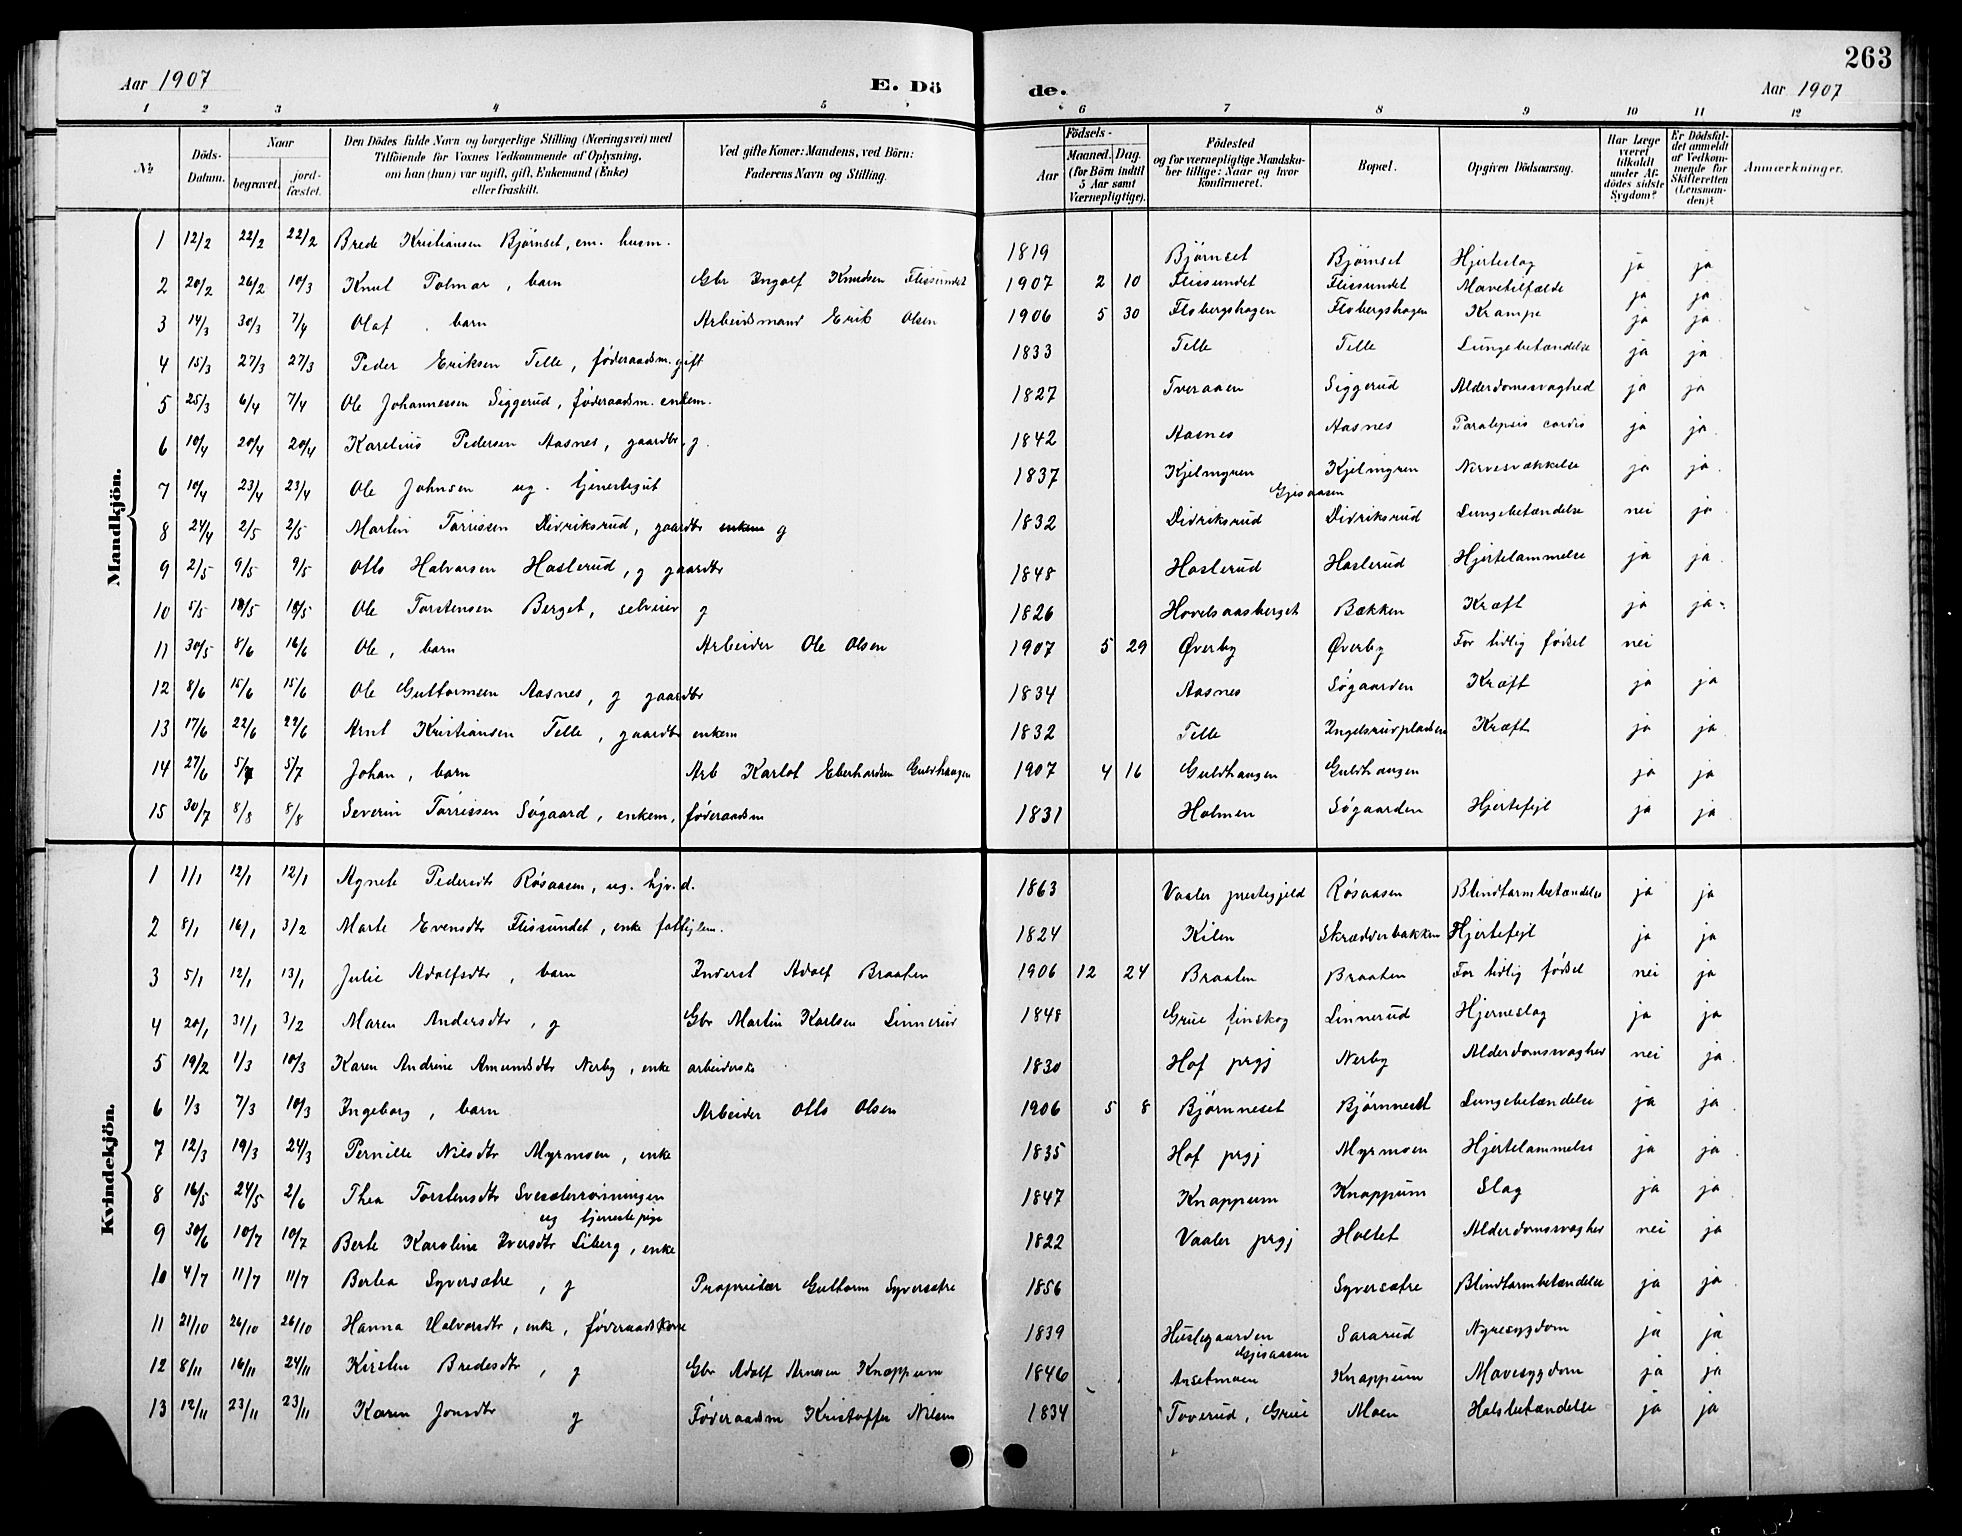 263
Aar 1907 E. Dö de. Aar 1907
1 2 3 4 5 6 7 8 9 10 11 12
No. Döds-Datum. Naar begravet. jordfæstet. Den Dödes fulde Navn og borgerlige Stilling (Næringsvei) med Tilföiende for Voxnes Vedkommende af Oplysning, om han (hun) var ugift, gift, Enkemand (Enke) eller fraskilt. Ved gifte Koner: Mandens, ved Börn: Faderens Navn og Stilling. Födsels- Aar Maaned. Dag. (for Börn indtil 5 Aar samt Værnepligtige). Födested og for værnepligtige Mandskaber tillige: Naar og hvor konfirmeret. Bopæl. Opgiven Dödsaarsag. Har Læge været tilkaldt under Afdödes sidste Sygdom? Er Dödsfaldet anmeldt af Vedkommende for Skifteretten (Lensmanden)? Anmærkninger.
Mandkjön.
1 12/2 22/2 22/2 Brede Kristiansen Bjørnset, em. husm. 1819 Bjørnset Bjørnset Hjerteslag ja ja
2 20/2 26/2 10/3 Knut Tolmar, barn Gbr Ingolf Knudsen Flissundet 1907 2 10 Flissundet Flissundet Mavetilfælde ja ja
3 14/3 30/3 7/4 Olaf, barn Arbeidsmand Erik Olsen 1906 5 30 Flsbergshagen Flsbergshagen Krampe ja ja
4 15/3 27/3 27/3 Peder Eriksen Telle, føderaadsm. gift 1833 Telle Telle Lungebetændelse ja ja
5 25/3 6/4 7/4 Ole Johannessen Siggerud, føderaadsm. enkem. 1827 Tveraaen Siggerud Alderdomssvaghed ja ja
6 10/4 20/4 20/4 Karelius Pedersen Aasnes, gaardbr, g. 1842 Aasnes Aasnes Paralepsis cordis ja ja
7 10/4 23/4 23/4 Ole Johnsen ug. tjenestegut 1837 Kjelmyren Gjesaasen Kjelmyren Nervesvækkelse ja ja
8 24/4 2/5 2/5 Martin Tørrissen Didriksrud, gaardbr enkem g 1832 Didriksrud Didriksrud Lungebetændelse nei ja
9 2/5 9/5 9/5 Otto Halvorsen Haslerud, g gaardbr 1848 Haslerud Haslerud Hjertelammelse ja ja
10 5/5 18/5 18/5 Ole Torstensen Berget, selveier g 1826 Hovelsaasberget Bækken Kræft ja ja
11 30/5 8/6 16/6 Ole, barn Arbeider Ole Olsen 1907 5 29 Øverby Øverby For tidlig fødsel nei
12 8/6 15/6 15/6 Ole Guttormsen Aasnes, g gaardbr 1834 Aasnes Søgaarden Kræft ja ja
13 17/6 22/6 22/6 Arnt Kristiansen Telle, gaardbr enkem 1832 Telle Ingelsrudpladsen Kræft ja ja
14 27/6 5/7 5/7 Johan, barn Arb Karlot Eberhardsen Guldhaugen 1907 4 16 Guldhaugen Guldhaugen ja ja
15 30/7 8/8 8/8 Severin Tørrissen Søgaard, enkem, føderaadsm 1831 Holmen Søgaarden Hjertefejl ja ja
Kvindekjön.
1 1/1 12/1 12/1 Agnete Pedersdtr Røsaasen, ug. hjv. d. 1863 Vaaler prestegjeld Røsaasen Blindtarmbetændelse ja ja
2 8/1 16/1 3/2 Marte Evensdtr Flissundet, enke fattiglem. 1824 Kilen Skrædderbakken Hjertefejl ja ja
3 5/1 12/1 13/1 Julie Adolfsdtr, barn Inderst Adolf Braaten 1906 12 24 Braaten Braaten For tidlig fødsel nei ja
4 20/1 31/1 3/2 Maren Andersdtr, g Gbr Martin Karlsen Linnerud 1848 Grue finskog Linnerud Hjerneslag ja ja
5 19/2 1/3 10/3 Karen Andrine Amundsdtr Nerby, enke arbeiderske 1830 Hof prgj Nerby Alderdomssvaghed nei ja
6 1/3 7/3 10/3 Ingeborg, barn Arbeider Otto Olsen 1906 5 8 Bjørnneset Bjørnneset Lungebetændelse ja ja
7 12/3 19/3 24/3 Pernille Nilsdtr Myrmoen, enke 1835 Hof prgj Myrmoen Hjertelammelse ja ja
8 16/5 24/5 2/6 Thea Torstensdtr ug tjenestepige 1847 Knappum Knappum Slag ja ja
9 30/6 10/7 10/7 Berte Karoline Iversdtr Liberg, enke 1822 Vaaler prgj Holtet Alderdomssvaghed nei ja
10 4/7 11/7 11/7 Bertea Syversætre, g Proprietær Guttorm Syversætre 1856 Syversætre Blindtarmbetændelse ja ja
11 21/10 26/10 26/10 Hanna Halvorsdtr, enke, føderaadskone 1839 Huslegaarden Gjesaasen Sararud Nyresygdom ja ja
12 8/11 16/11 24/11 Kirsten Bredesdtr, g Gbr Adolf Arnesen Knappum 1846 Ansetmoen Knappum Mavesygdom ja ja
13 12/11 23/11 23/11 Karen Jonsdtr g Føderaadsm Kristoffer Nilsen 1834 Toverud, Grue Moen Halsbetændelse ja ja